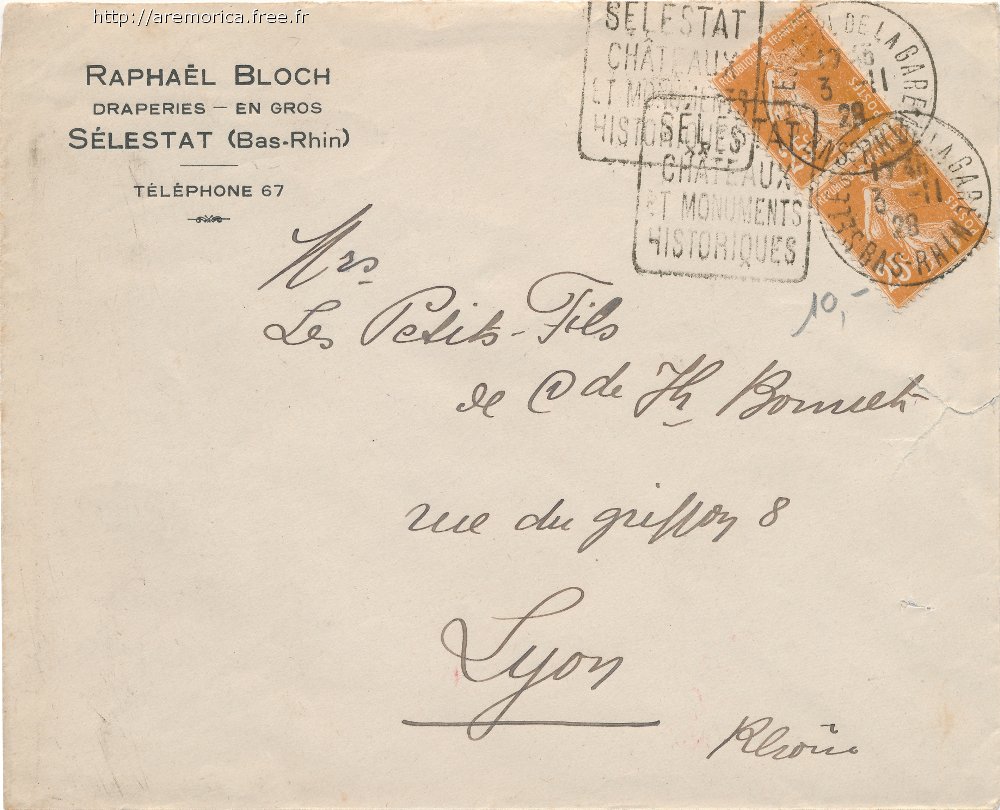 http://aremorica.free.fr
RAPHAËL BLOCH
DRAPERIES — EN GROS
SÉLESTAT (Bas-Rhin)
TÉLÉPHONE 67
SÉLESTAT
CHÂTEAUX
ET MONUMENTS
HISTORIQUES
SÉLESTAT
CHÂTEAUX
ET MONUMENTS
HISTORIQUES
DE LA GARE
3 -11
28
LA GARE
3 -11
28
BAS-RHIN
RÉPUBLIQUE FRANÇAISE
POSTES
POSTES
25
10,-
Mrs
Les Petits-Fils
de C de Th Bonnet
rue du griffon 8
Lyon
Rhône